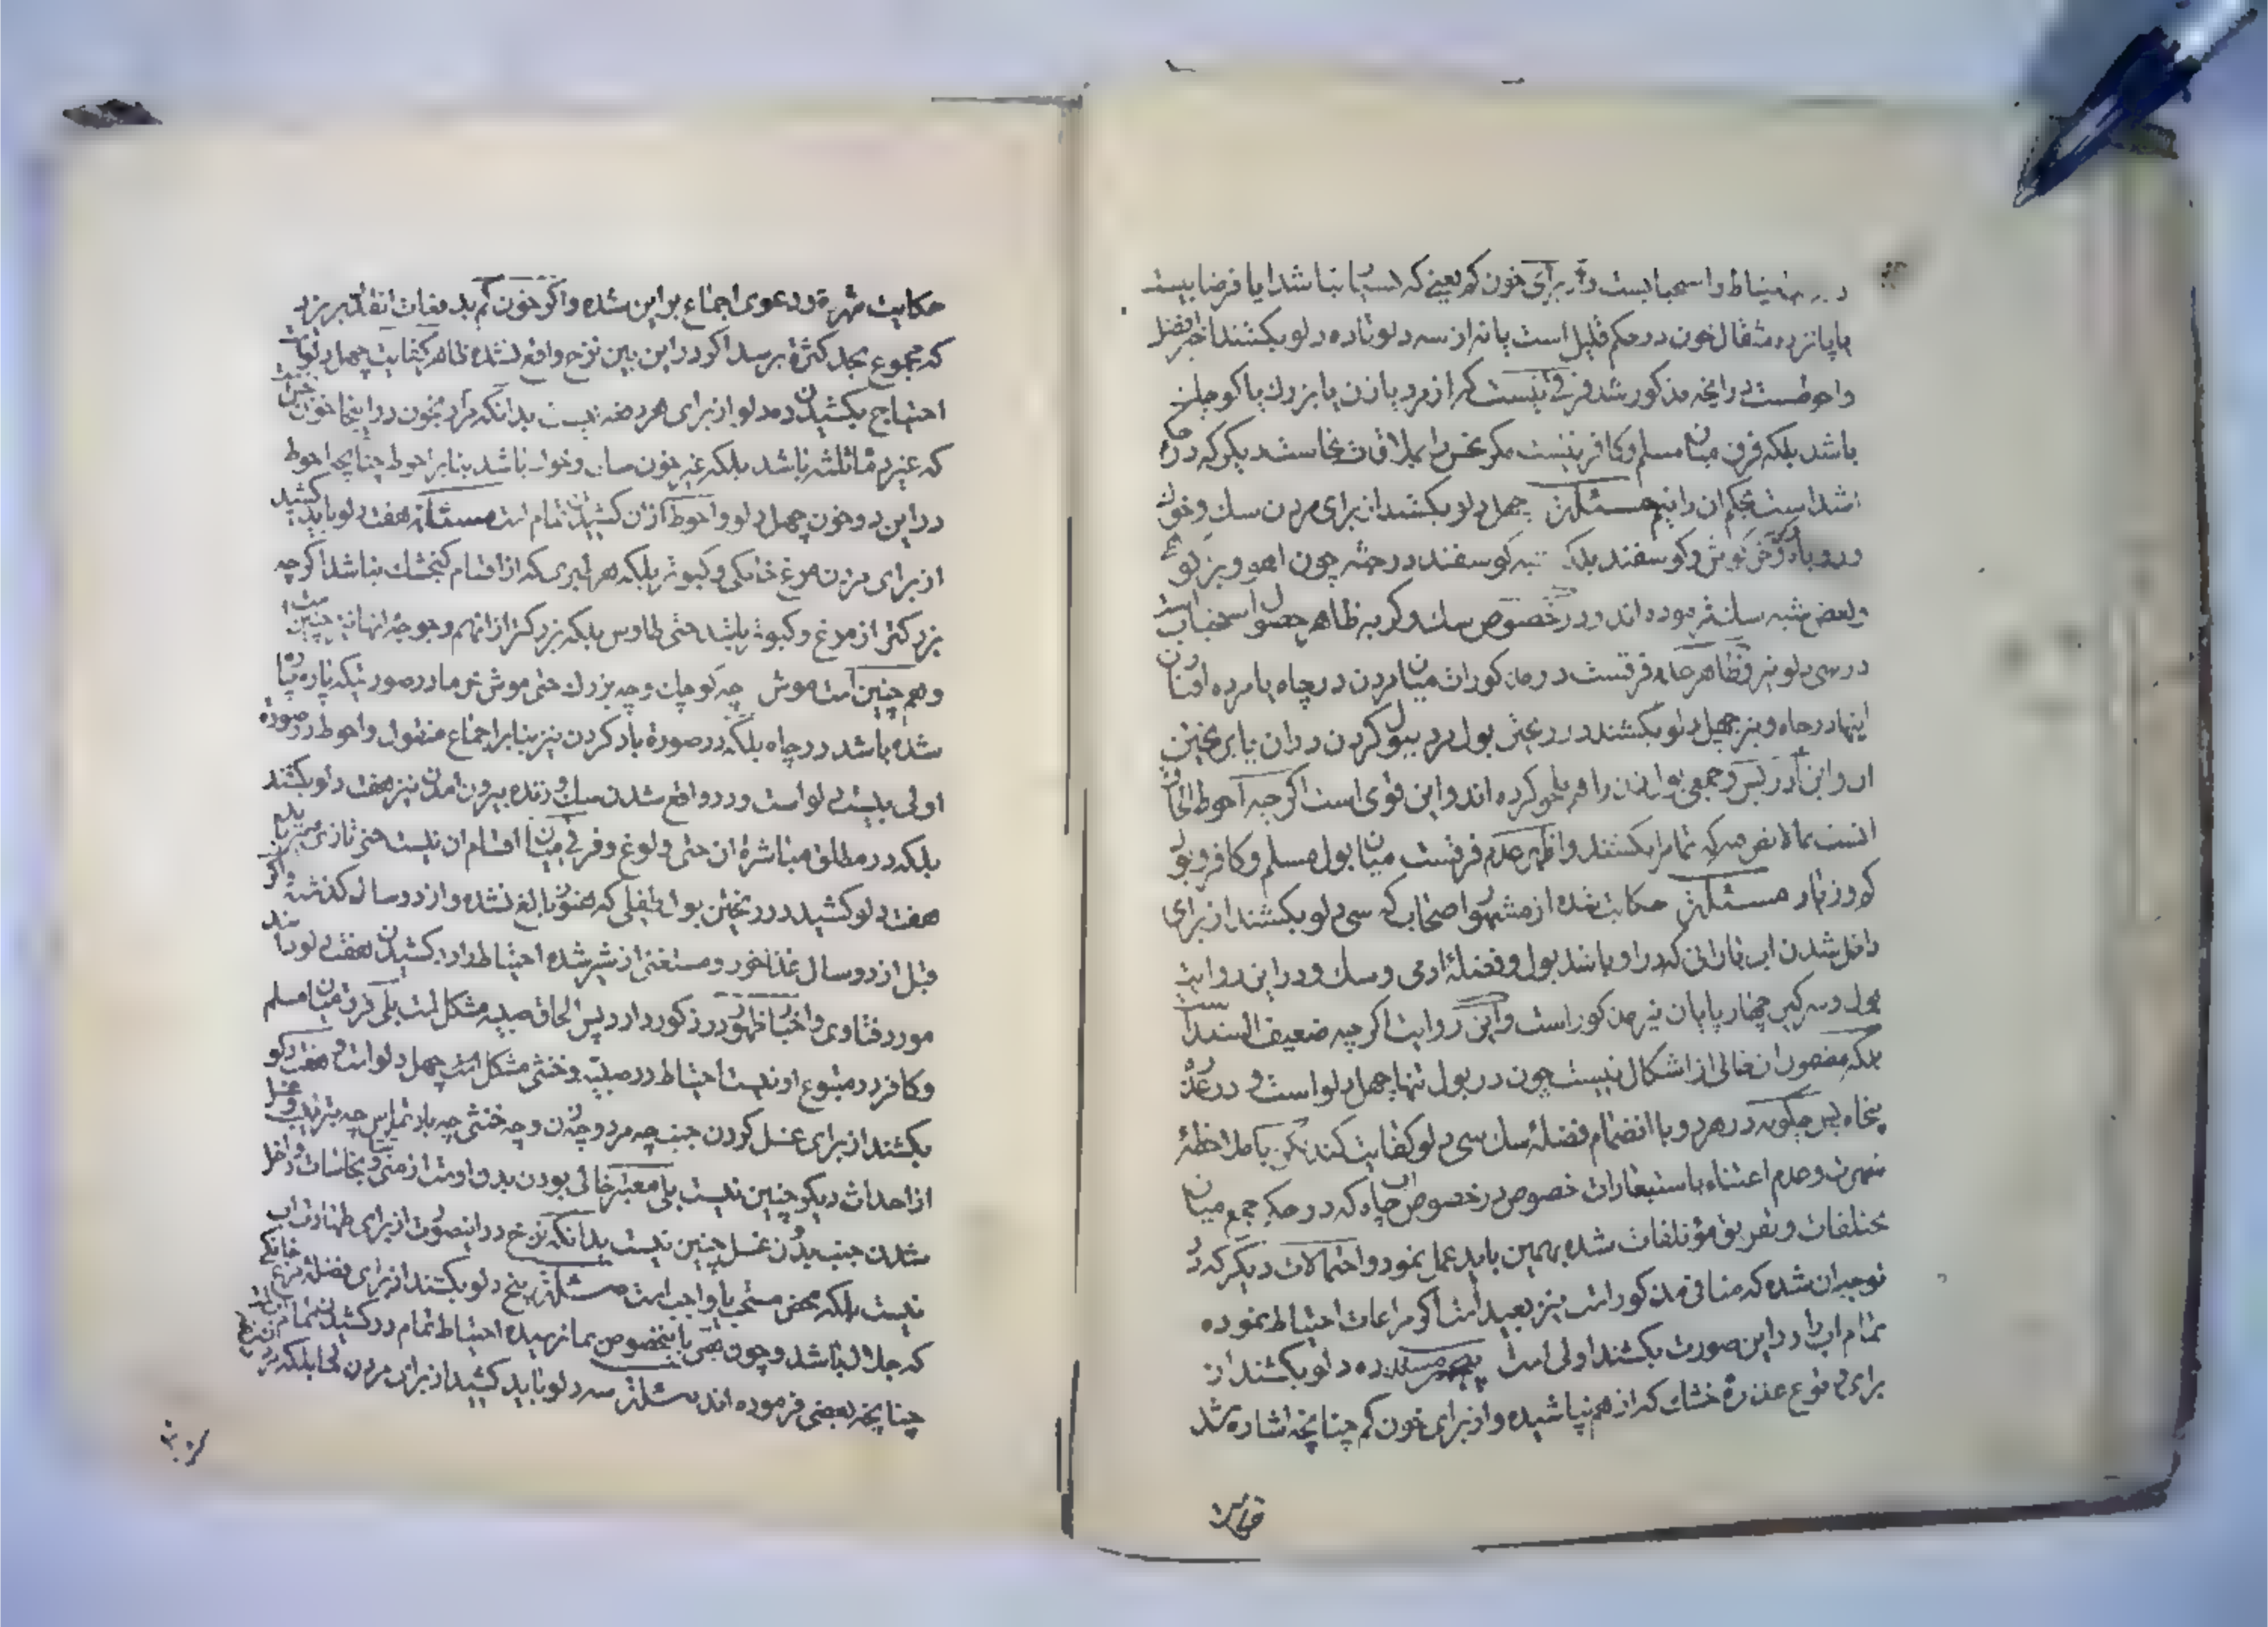 احتیاط و استحبابست و از برای خون کم یعنی که بسیار نباشد ایا فرضا بیست
یا پانزده مثقال خون در حکم قلیل است یا نه از سه دلو تا ده دلو بکشند
و احوطست در انچه مذکور شد فرقی نیست که از مرد یا زن یا بزرك یا کوچك
باشد بلکه فرق میان مسلم و کافر نیست مکر نجس را بملاقات نجاست دیکر که در حکم
اشد است بحکم ان دانیم مسئلة چهل دلو بکشند از برای مردن سك و خوك
و روباه و خرکوش و کوسفند بلکه شبه کوسفند در جثه چون اهو و بز
و بعض شبه سك فرموده اند و در خصوص سك و کربه ظاهر حصول استحباب است
در سی دلو نیز و ظاهر عدم فرقست در مذکورات میان مردن در چاه یا مرده افتادن
اینها در چاه و نیز چهل دلو بکشند در ریختن بول مرد ببول کردن در ان یا بریختن
ان و ابن ادریس و جمعی بول زن را هم ملحق کرده اند و این قوی است اکر چه احوط الحاق
انست بما لا نص فیه که تمام را بکشند و اظهر عدم فرقست میان بول مسلم و کافر و بول
کم و زیاد مسئلة حکایت شده از مشهور اصحاب که سی دلو بکشند از برای
داخل شدن اب بارانی که در او باشد بول و فضلهٔ ادمی و سك و در این روایت
بول و سرکین چهار پایان نیز مذکور است و این روایت اکر چه ضعیف السند است
بلکه مضمون ان خالی از اشکال نیست چون در بول تنها چهل دلو است و در عذره
پنجاه پس چکونه در هر دو با انضمام فضلهٔ سك سی دلو کفایت کند لکن با ملاحظهٔ
شهرت و عدم اعتناء باستبعادات خصوص در خصوص اب چاه که در حکم جمع میان
مختلفات و تفریق مؤتلفات شده بهمین باید عمل نمود و احتمالات دیکر که در
توجیه ان شده که منافی مذکور است نیز بعید است اکر مراعات احتیاط نموده
تمام اب را در این صورت بکشند اولی است مسئله ده دلو بکشند از
برای وقوع عذرهٔ خشك که از هم نپاشیده و از برای خون کم چنانچه اشاره شد
حکایت شهرة و دعوی اجماع بر این شده و اکر خون کم بدفعات اتفاقا بریزد
که مجموع بحد کثرة برسد اکر در این بین نزح واقع نشده ظاهر کفایت چهل دلو است
احتیاج بکشیدن ده دلو از برای هر دفعه نیست بدانکه مراد بخون در اینجا خونی است
که غیر دماء ثلثه باشد بلکه غیر خون سك و خوك باشد بنابر احوط چنانچه احوط
در این دو خون چهل دلو و احوط از ان کشیدن تمام است مسئلة هفت دلو باید کشید
از برای مردن مرغ خانکی و کبوتر بلکه هر طیری که از اقسام کنجشك نباشد اکر چه
بزرکتر از مرغ و کبوتر باشد حتی طاوس بلکه بزرکتر از انهم و جوجهٔ انها نیز چنین است
و هم چنین است موش چه کوچك و چه بزرك حتی موش خرما در صورتیکه پاره پاره
شده باشد در چاه بلکه در صورة باد کردن نیز بنابر اجماع منقول و احوط در صورة
اولی بیست دلو است و در واقع شدن سك و زنده بیرون امدن نیز هفت دلو بکشند
بلکه در مطلق مباشرة ان حتی ولوغ و فرقی میان اقسام ان نیست حتی تازی
هفت دلو کشید در ریختن بول طفلی که هنوز بالغ نشده و از دو سال کذشته و اکر
قبل از دو سال غذا خور و مستغنی از شیر شده احتیاط دارد کشیدن هفت دلو
مورد فتاوی و اخبار ظهور در ذکور دارد پس الحاق صبیه مشکل است بلی فرق میان مسلم
و کافر در متبوع او نیست احتیاط در صبیه و خنثی مشکل است چهل دلو است و هفت دلو
بکشند از برای غسل کردن جنب چه مرد و چه زن و چه خنثی چه بارتماس چه بترتیب و غسل
از احداث دیکر چنین نیست بلی معتبر خالی بودن بدن اوست از منی و نجاسات و داخل
شدن جنب بدون غسل چنین نیست بدانکه نزح در اینصورت از برای طهارت اب
نیست بلکه محض مستحب یا واجب است مسئلة پنج دلو بکشند از برای فضلهٔ مرغ خانکی
که جلال باشد و چون نص باینخصوص بما نرسیده احتیاط تمام در کشیدن تمام است
چنانچه بعضی فرموده اند مسئلة سه دلو باید کشید از برای مردن بلکه در